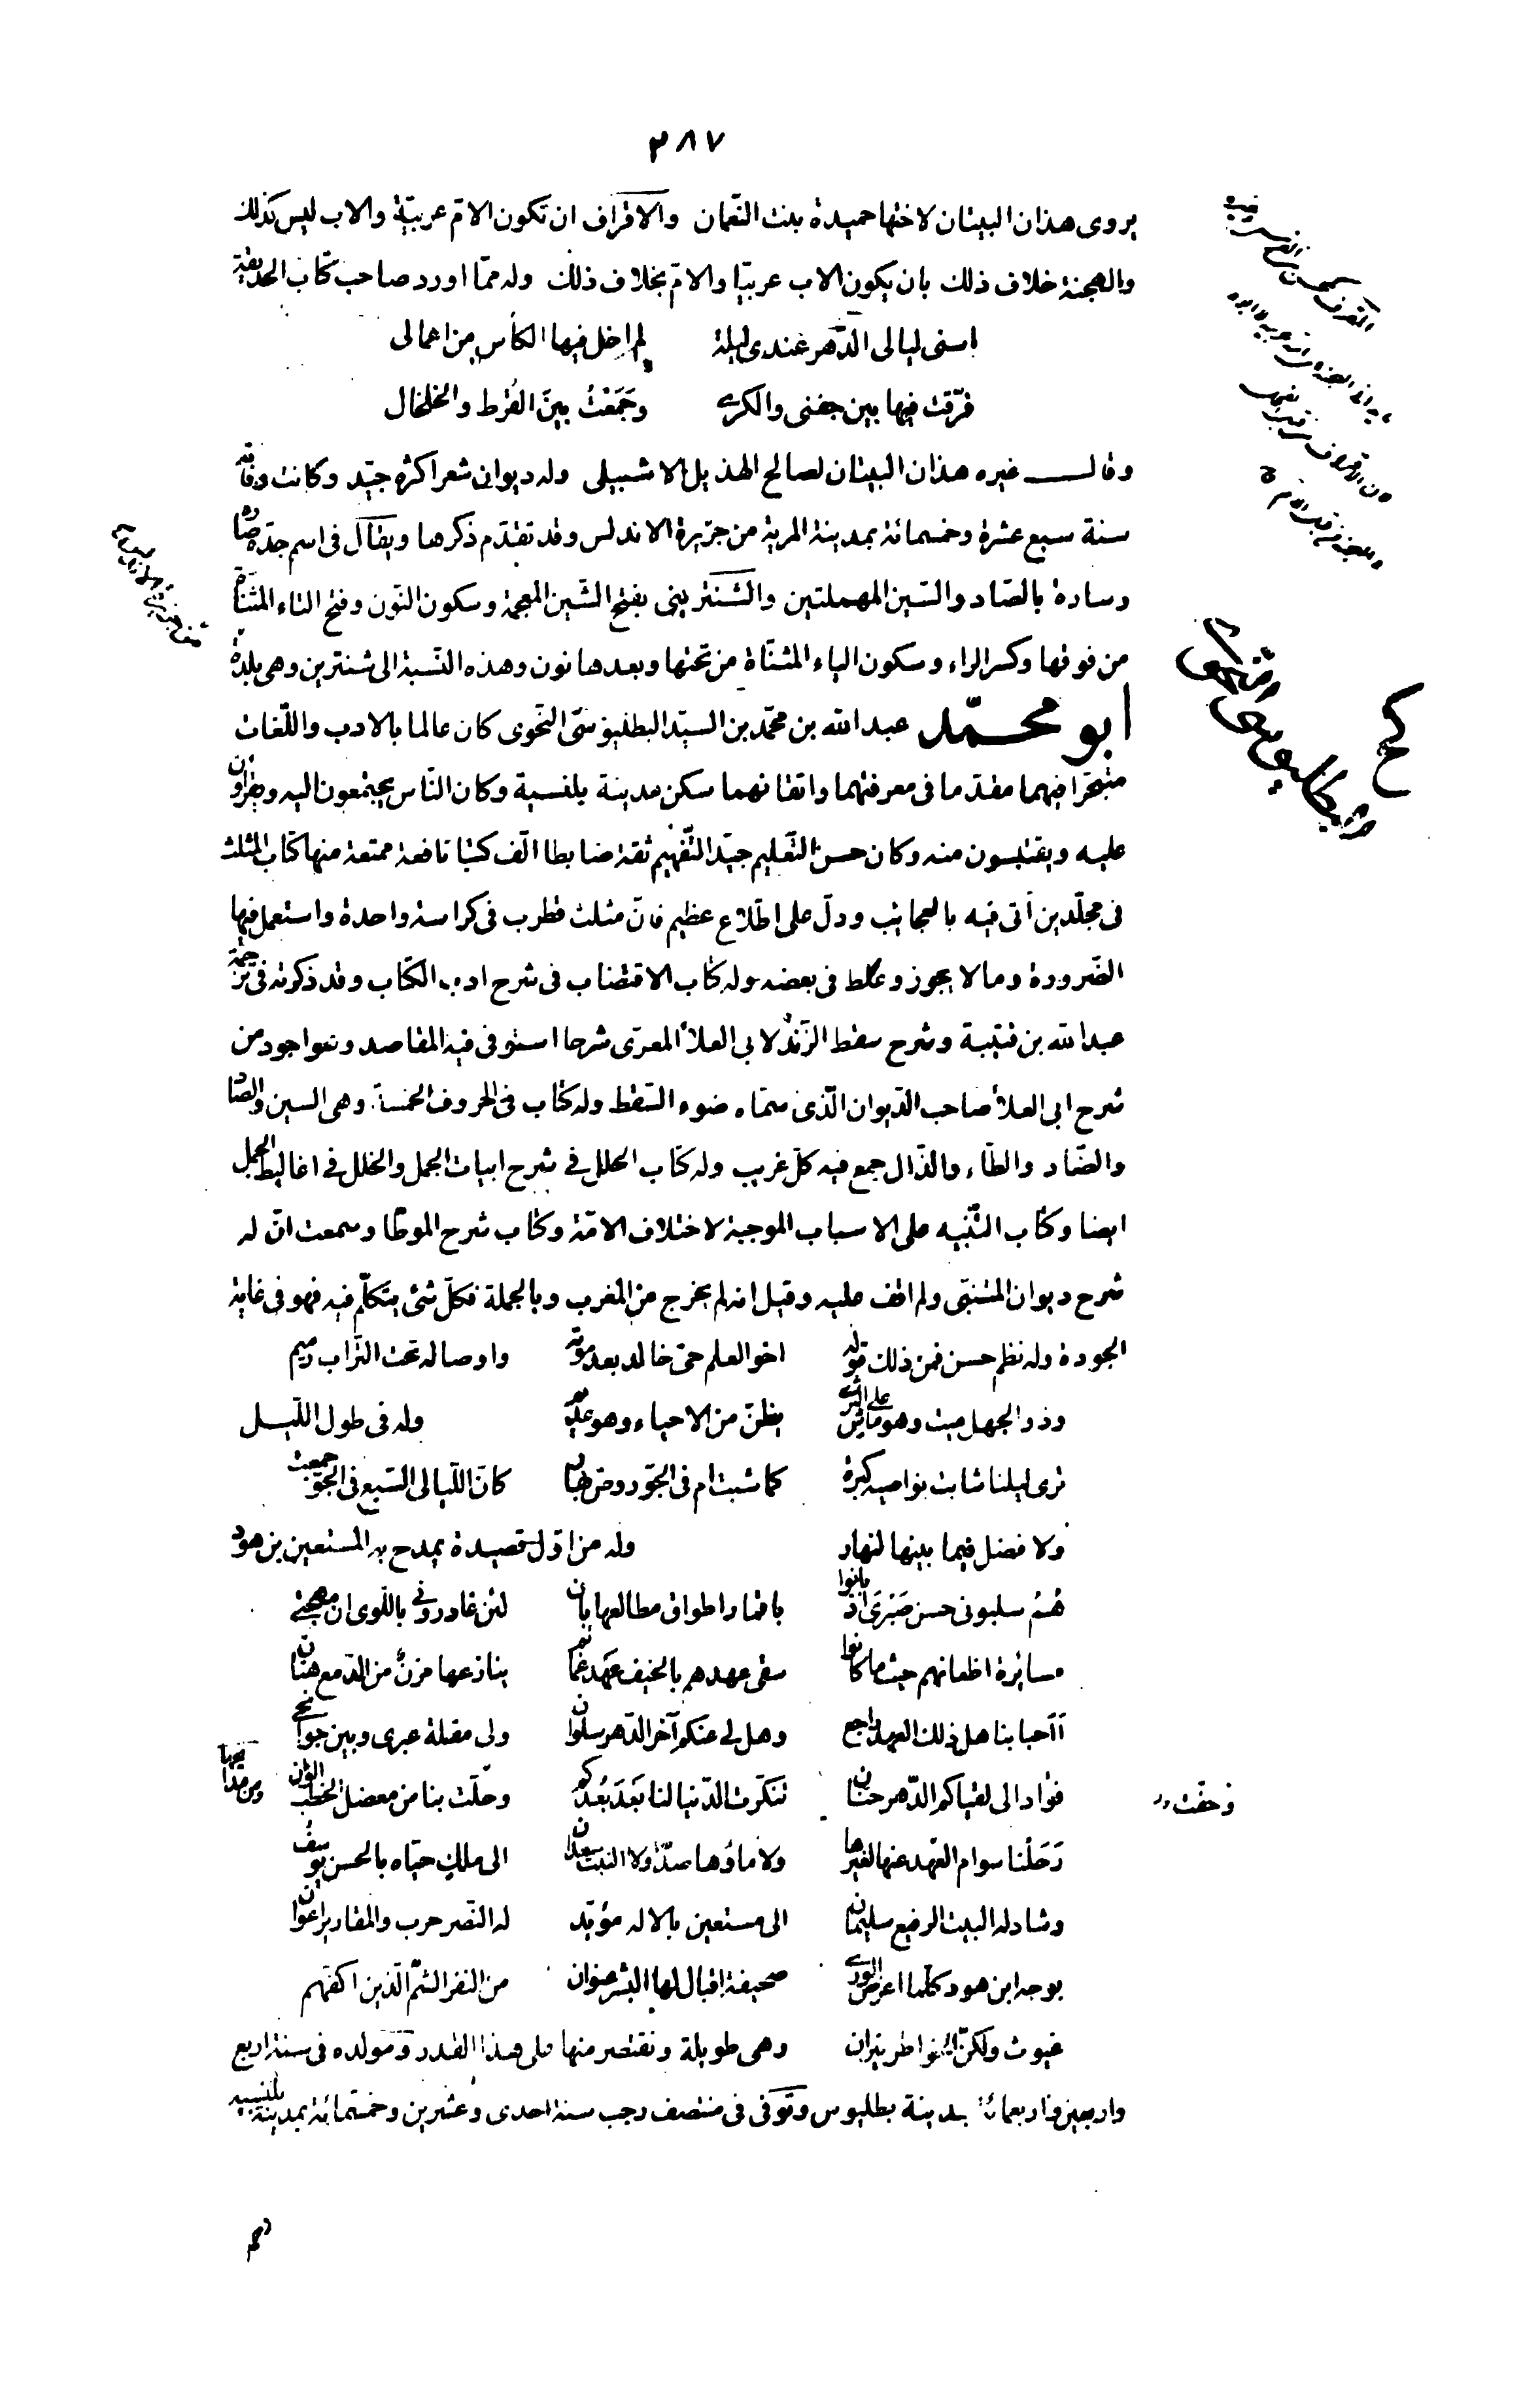 ٣٨٧
يروى هذان البيتان لاختها حميدة بنت النّعمان والاقراف ان تكون الامّ عربيّة والاب ليس كذلك
والهجنة خلاف ذلك بان يكون الاب عربيّا والامّ بخلاف ذلك وله ممّا اورد صاحب كتاب الحديقة
اسنى ليالى الدّهر عندى ليلة لم اخل فيها الكأس من اعمالى
فرّقت فيها بين جفنى والكرى وجَمَعْتُ بينَ القُرط والخلخال
وقال غيره هذان البيتان لصالح الهذيل الاشبيلى وله ديوان شعر اكثره جيّد وكانت وفاته
سنة سبع عشرة وخمسمائة بمدينة المرية من جزيرة الاندلس وقد تقدّم ذكرها ويقال فى اسم جدّه صارة
وسارة بالصّاد والسّين المهملتين والشّنترينى بفتح الشّين المعجمة وسكون النّون وفتح التاء المثنّاة
من فوقها وكسر الراء وسكون الياء المثنّاة من تحتها وبعدها نون وهذه النّسبة الى شنترين وهى بلدة
ابو محمّد عبد الله بن محمّد بن السيّد البطليوسىّ النّحوى كان عالما بالادب واللّغات
متبحّرا فيهما مقدّما فى معرفتهما واتقانهما سكن مدينة بلنسية وكان النّاس يجتمعون اليه ويقرأون
عليه ويقتبسون منه وكان حسن التّعليم جيّد التّفهيم ثقة ضابطا الّف كتبا نافعة ممتعة منها كتاب المثلث
فى مجلّدين أتى فيه بالعجائب ودلّ على اطّلاع عظيم فانّ مثلث قطرب فى كراسة واحدة واستعمل فيها
الضّرورة وما لا يجوز وغلط فى بعضه وله كتاب الاقتضاب فى شرح ادب الكتّاب وقد ذكرته فى ترجمة
عبد الله بن قتيبة وشرح سقط الزّند لابى العلاء المعرّى شرحا استوفى فيه المقاصد وهو اجود من
شرح ابى العلاء صاحب الدّيوان الّذى سمّاه ضوء السّقط وله كتاب فى الحروف الخمسة وهى السين والصّاد
والضّاد والطّاء والذّال جمع فيه كلّ غريب وله كتاب الحلل فى شرح ابيات الجمل والخلل فى اغاليط الجمل
ايضا وكتاب التّنبيه على الاسباب الموجبة لاختلاف الامّة وكتاب شرح الموطّا وسمعت انّ له
شرح ديوان المتنبّى ولم اقف عليه وقيل انه لم يخرج من المغرب وبالجملة فكلّ شئ يتكلّم فيه فهو فى غاية
الجودة وله نظم حسن فمن ذلك قوله اخو العلم حىّ خالد بعد موته واوصاله تحت التّراب رميم
وذو الجهل ميت وهو ماش على الثّرى يظنّ من الاحياء وهو عديم وله فى طول اللّيل
ترى ليلنا شابت نواصيه كبرة كما شبت ام فى الجوّ روض بهار كانّ اللّيالى السّبع فى الجوّ جمعت
ولا فضل فيما بينها لنهار وله من اوّل قصيدة يمدح به المستعين بن هود
هُمُ سلبونى حسن صَبْرى اذ بانوا باقمار اطواق مطالعها بان لئن غادرونى باللّوى ان مهجتى
مسائرة اظعانهم حيثما كانوا سقى عهدهم بالخيف عهد غمائم ينازعها مزنٌ من الدّمع هتان
أأحبابنا هل ذلك العهد راجع وهل لى عنكم آخر الدّهر سلوان ولى مقلة عبرى وبين جوانحى
فؤاد الى لقياكم الدّهر حنان تنكّرت الدّنيا لنا بَعْدَ بُعْدكم وحلّت بنا من معضل الخطب الوان
رَحَلْنا سوام العهد عنها لغيرها ولا ماؤها صدّا ولا النبت سعدان الى ملك حيّاه بالحسن يوسف
وشاد له البيت الرفيع سليمان الى مستعين بالاله مؤيّد له النّصر حرب والمقادير اعوان
بوجه ابن هود كلّما اعرض الورى صحيفة اقبال لها البشر عنوان من النفر الشّمّ الّذين اكفّهم
غيوث ولكنّ الخواطر نيران وهى طويلة ونقتصر منها على هذا القدر ومولده فى سنة اربع
واربعين واربعمائة بمدينة بطليوس وتوفّى فى منتصف رجب سنة احدى وعشرين وخمسمائة بمدينة بلنسيه